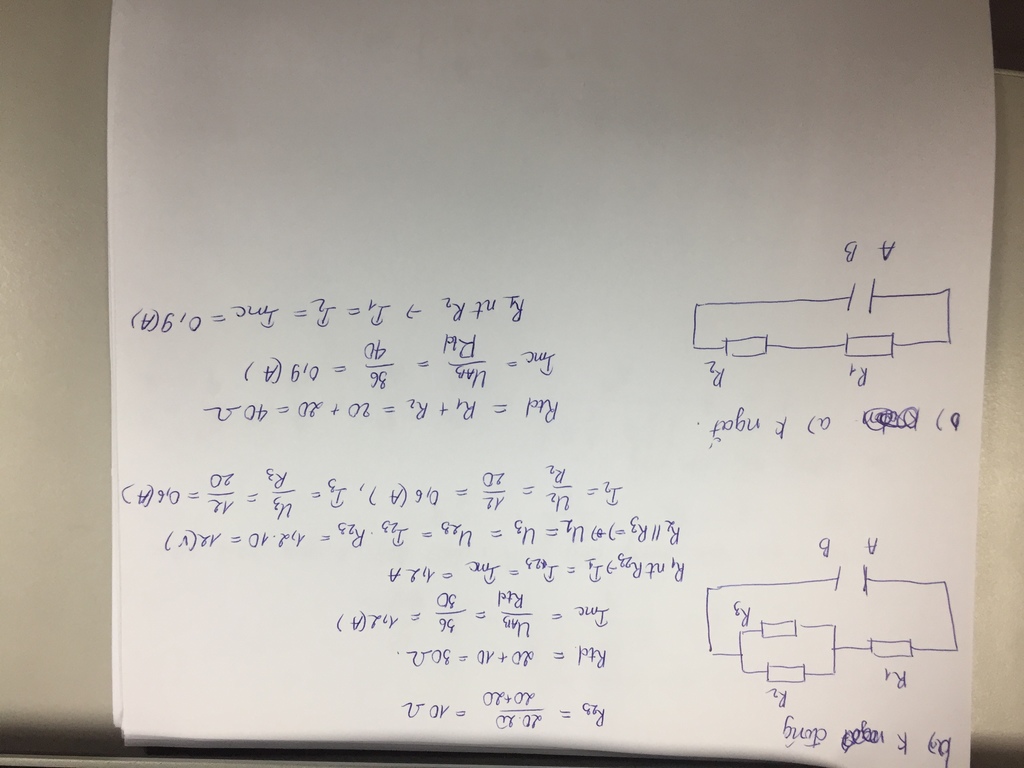 b) K đóng
R1
R2
R3
A B
R23 = 20.20 / 20+20 = 10Ω
Rtđ = 20+10 = 30Ω.
Imc = UAB / Rtđ = 36 / 30 = 1,2(A)
R1 nt R23 → I1 = I23 = Imc = 1,2 A
R2 // R3 => U2 = U3 = U23 = I23 . R23 = 1,2.10 = 12(V)
I2 = U2 / R2 = 12 / 20 = 0,6(A), I3 = U3 / R3 = 12 / 20 = 0,6(A)
b) a) K ngắt.
R1
R2
A B
Rtđ = R1 + R2 = 20 + 20 = 40Ω
Imc = UAB / Rtđ = 36 / 40 = 0,9(A)
R1 nt R2 → I1 = I2 = Imc = 0,9(A)